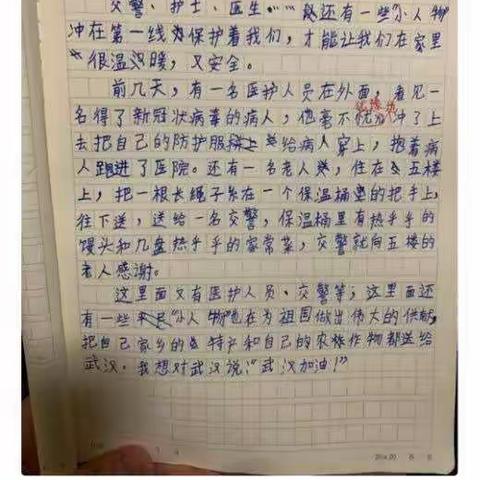 交警、护士、医生……还有一些“小人物”
冲在第一线为保护着我们，才能让我们在家里
很温暖，又安全。
前几天，有一名医护人员在外面，看见一
名得了新冠状病毒的病人，他毫不犹豫冲了上
去把自己的防护服给病人穿上，抱着病
人跑进了医院。还有一名老人，住在五楼
上，把一根长绳子系在一个保温桶的把手上，
往下送，送给一名交警，保温桶里有热乎乎的
馒头和几盘热乎乎的家常菜，交警就向五楼的
老人感谢。
这里面又有医护人员、交警等，这里面还
有一些“小人物”也在为祖国做出伟大的供献，
把自己家乡的特产和自己的农作物都送给
武汉。我想对武汉说：“武汉加油！”